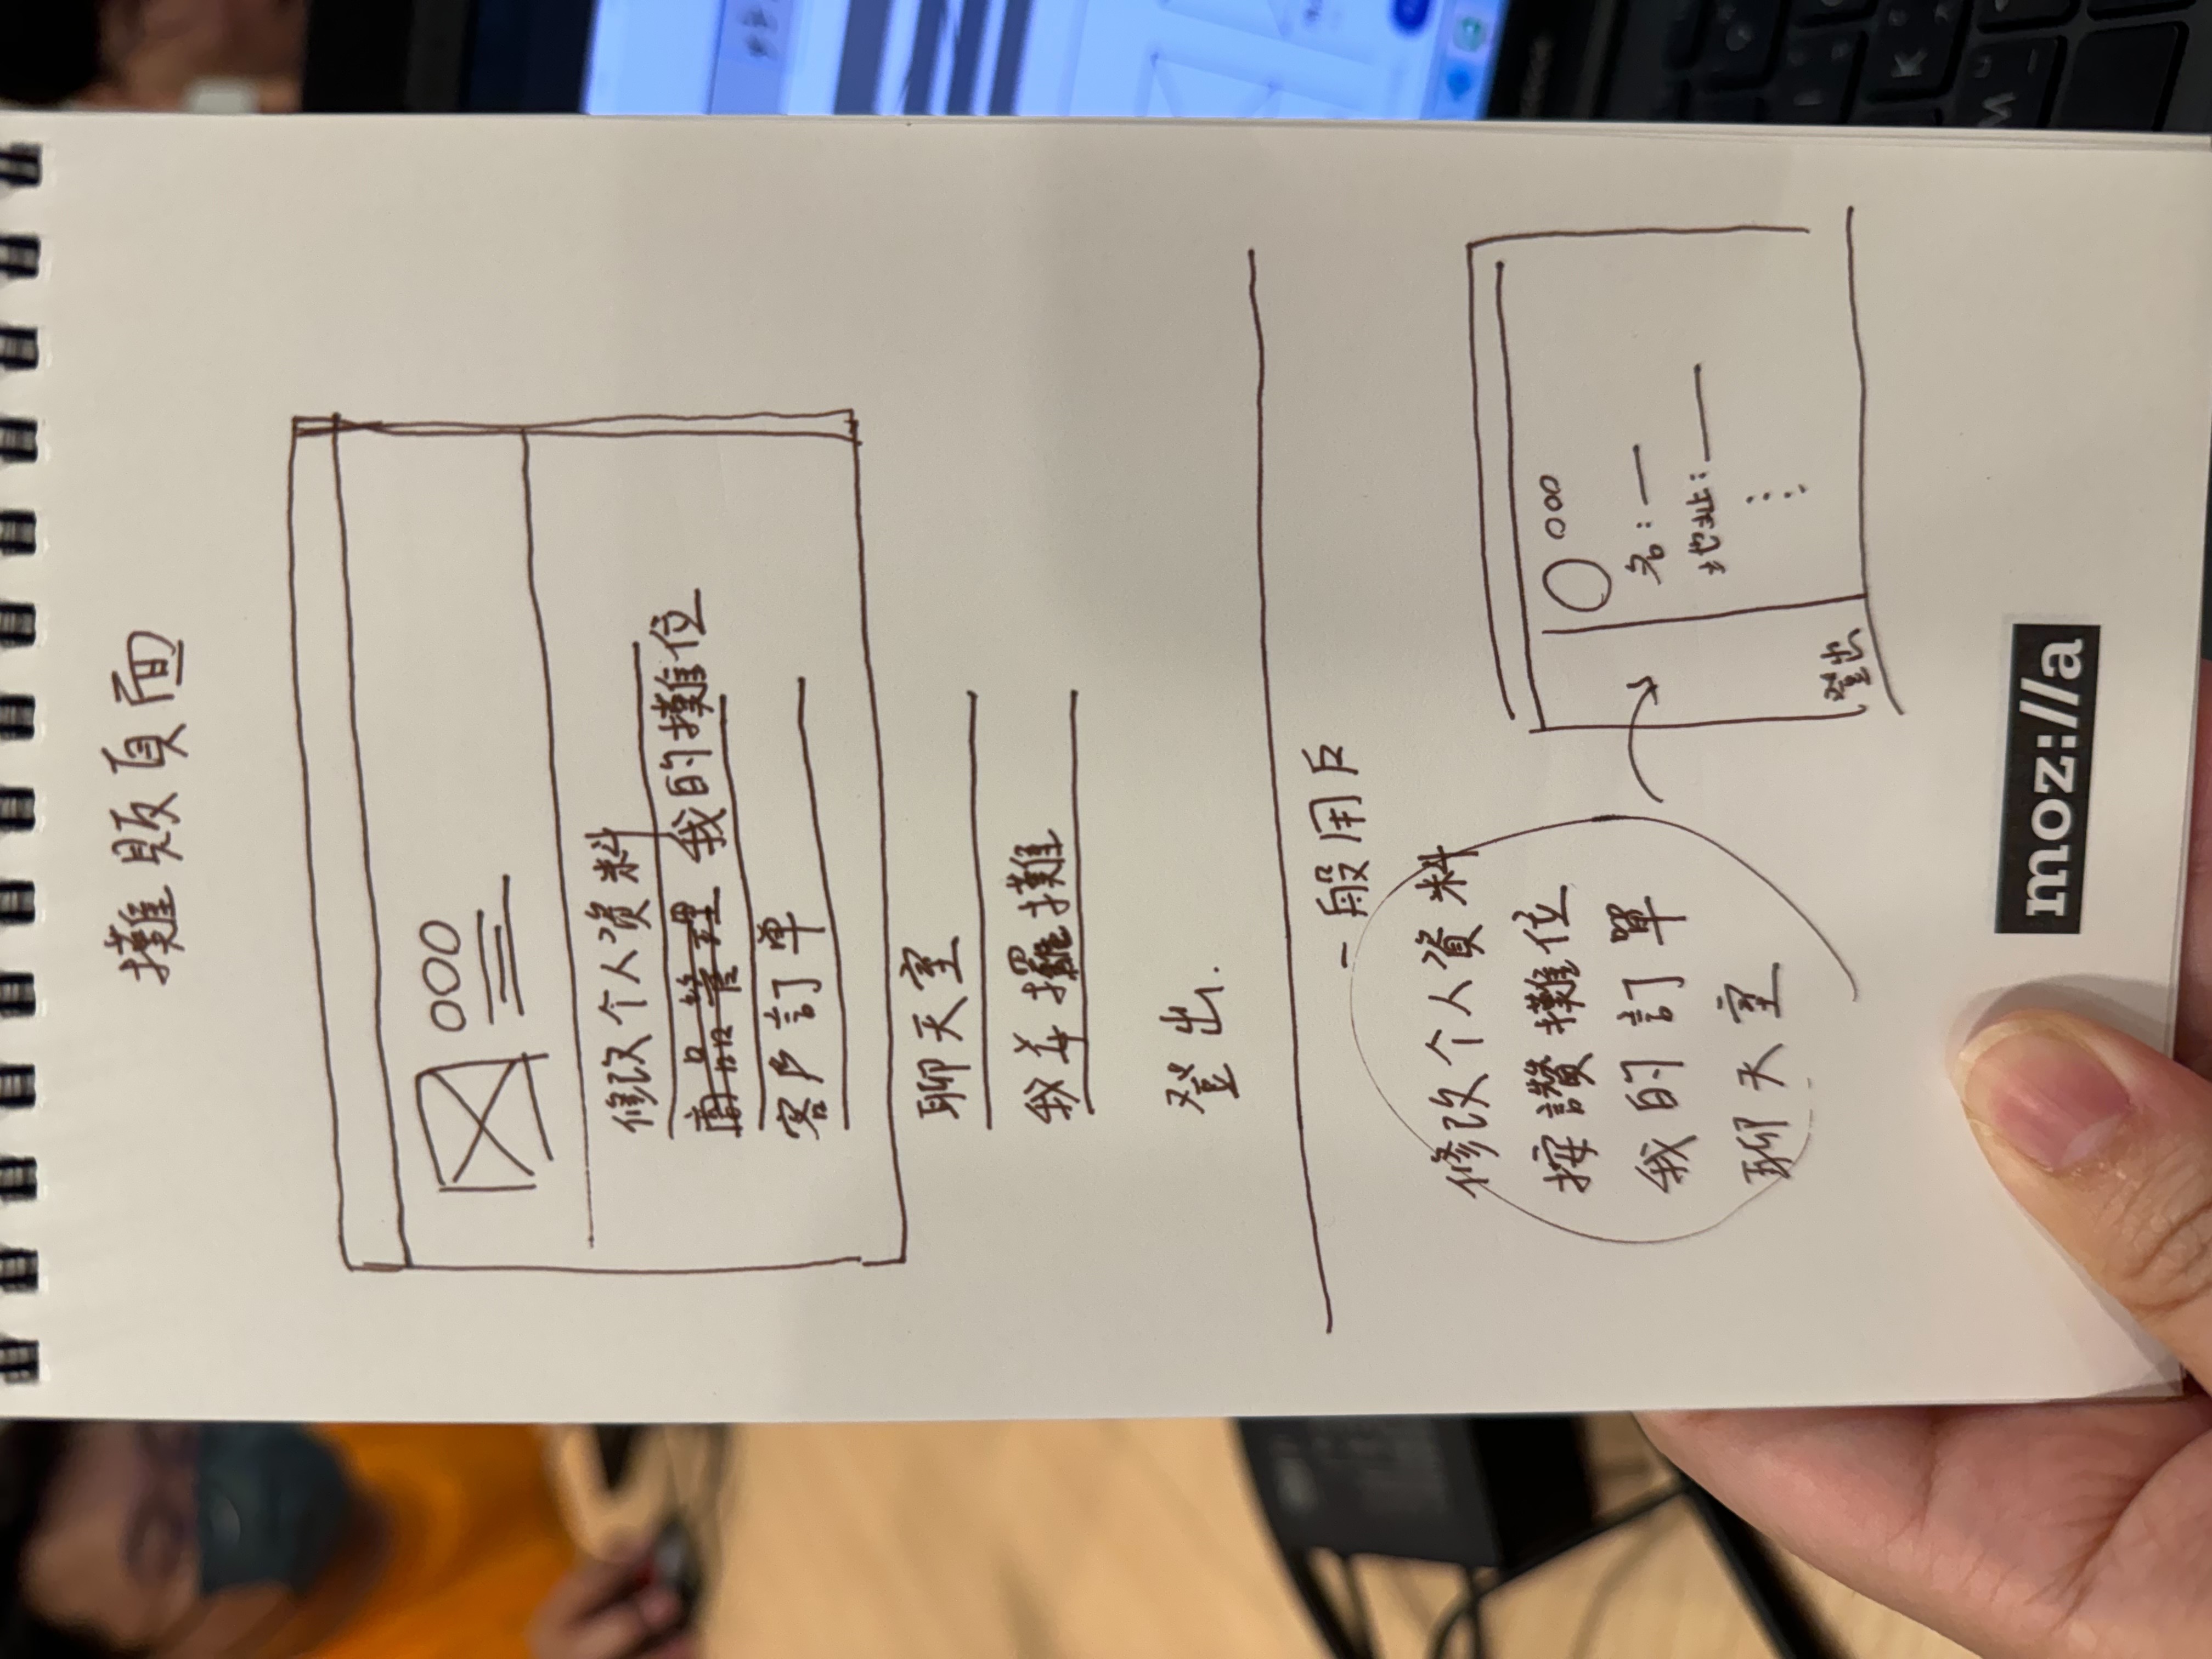 攤販頁面
OOO
修改个人資料
商品管理 我的攤位
客戶訂单
聊天室
我要擺攤
登出.
一般用戶
修改个人資料
按讚攤位
我的訂單
聊天室
OOO
名:
地址:
登出
moz://a
K
M